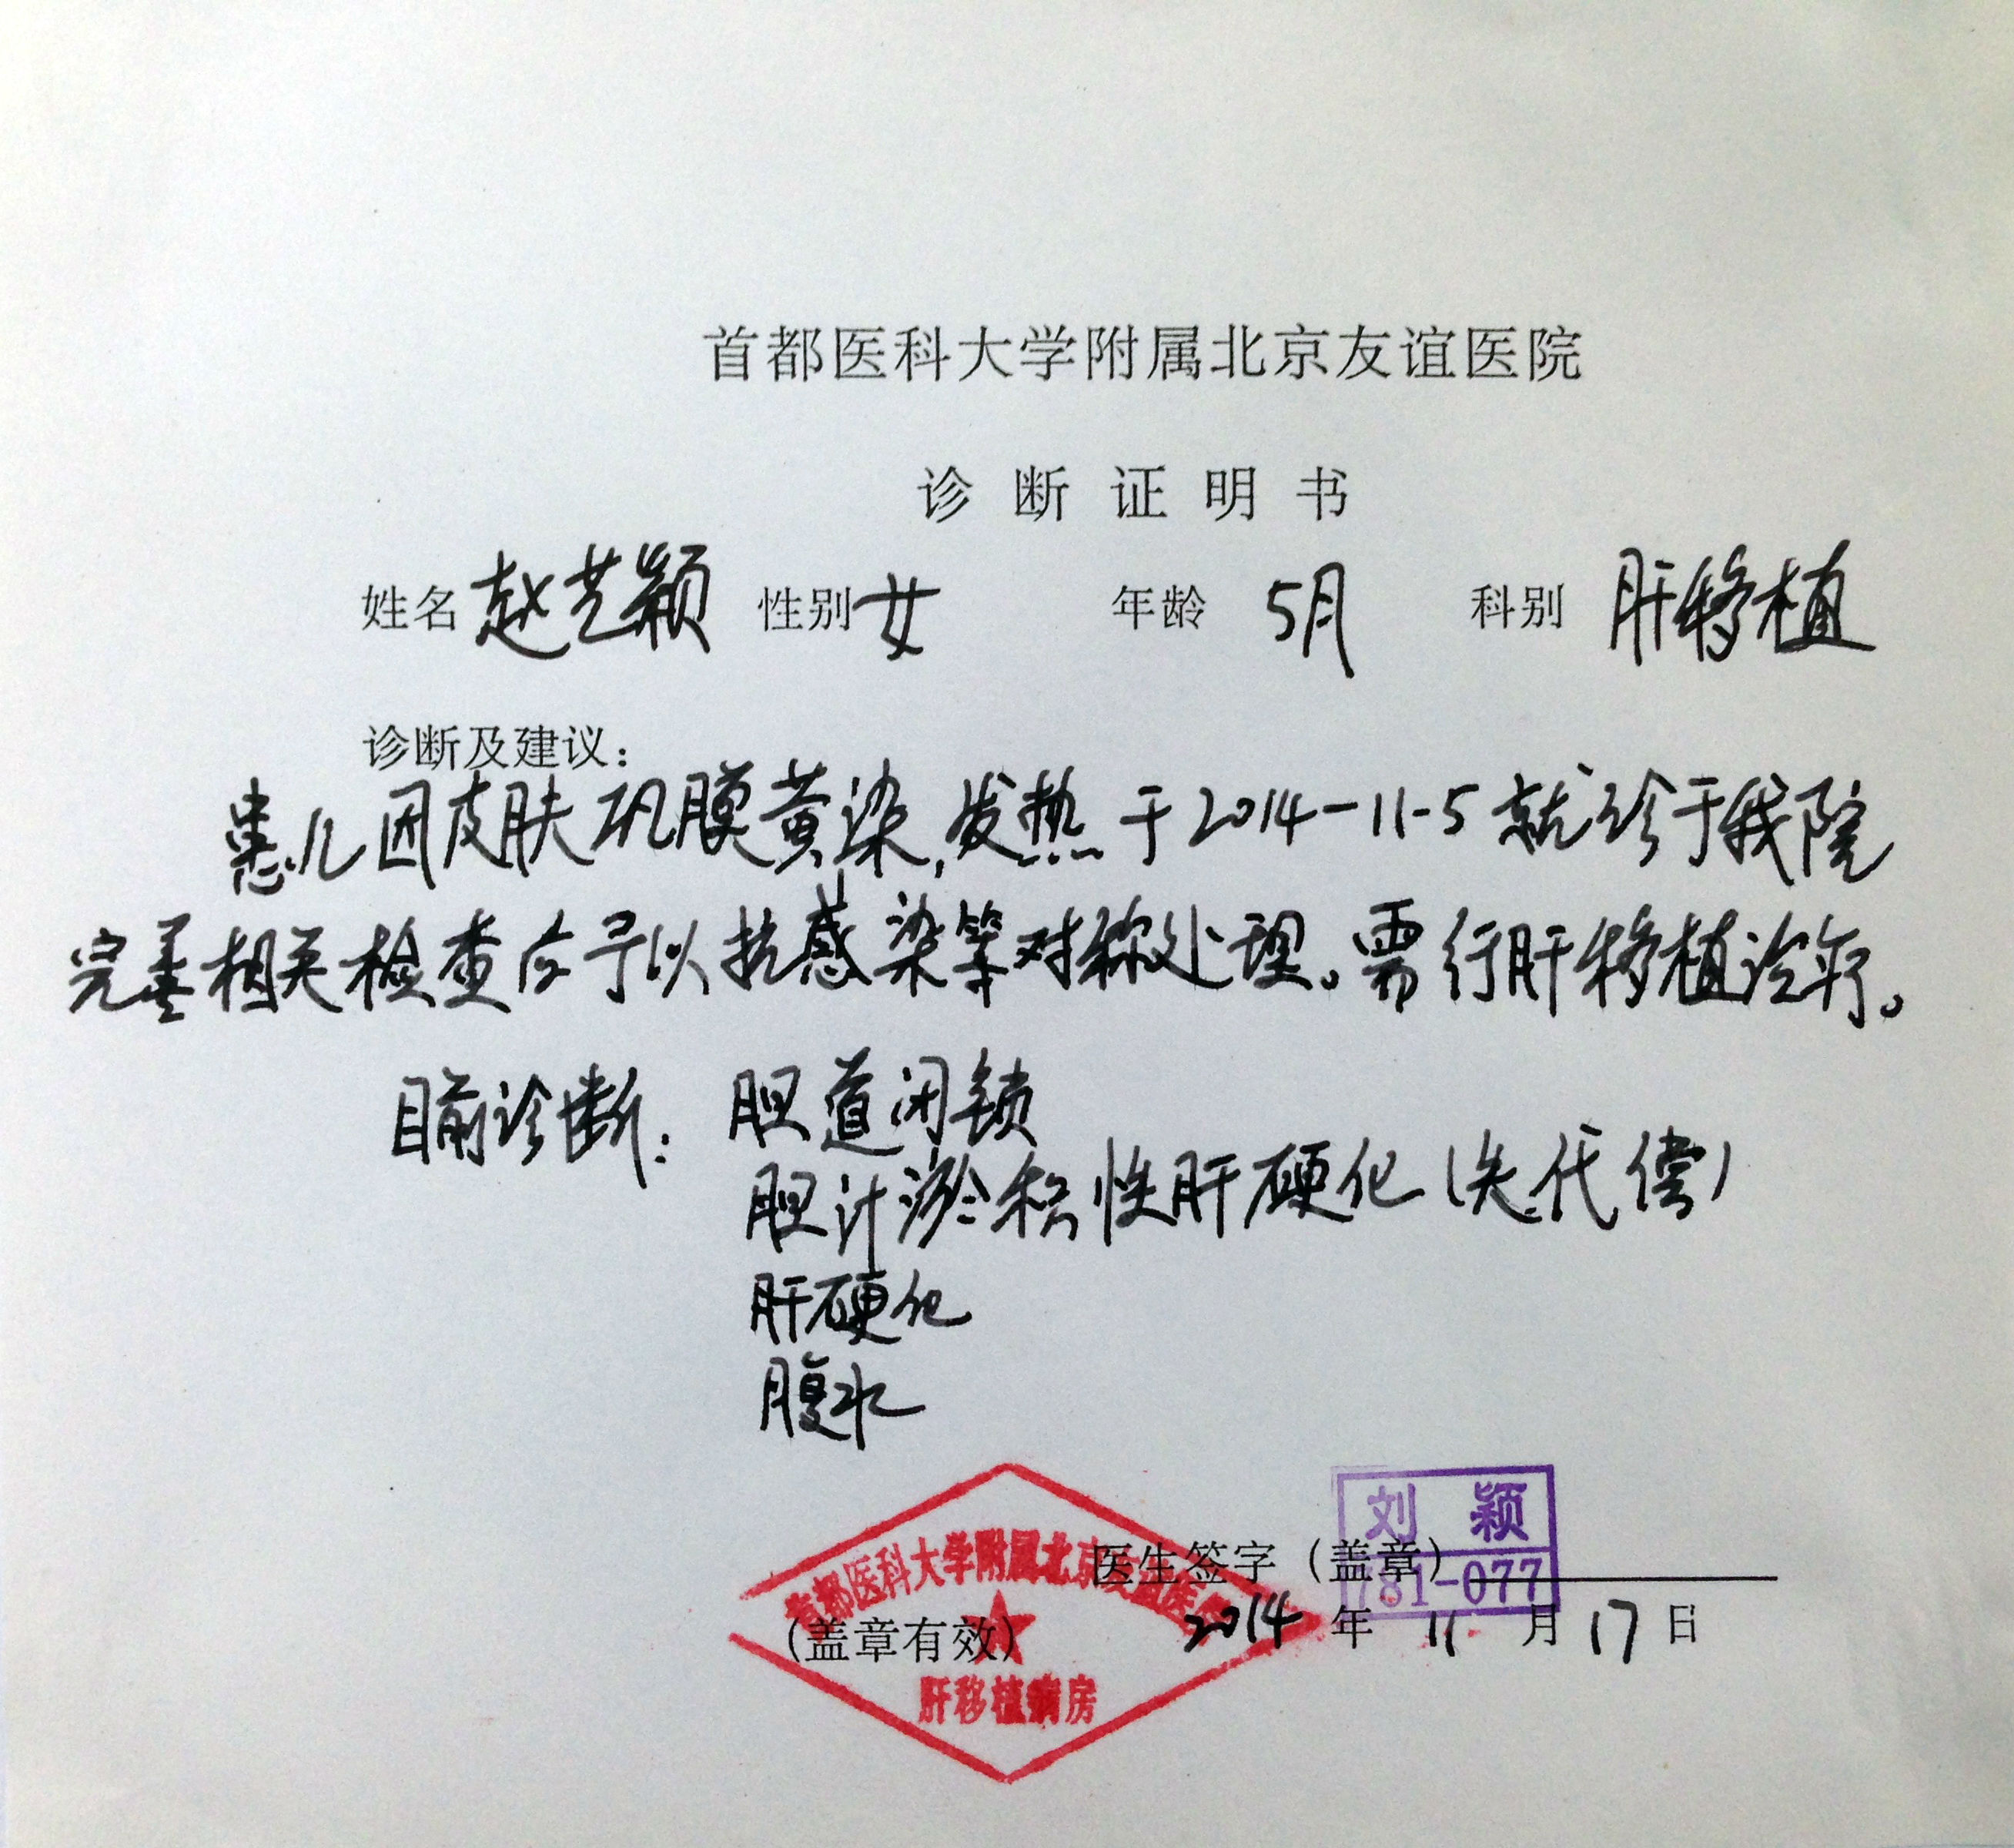 首都医科大学附属北京友谊医院
诊断证明书
姓名 赵艺颖 性别 女 年龄 5月 科别 肝移植
诊断及建议：
患儿因皮肤巩膜黄染,发热于2014-11-5就诊于我院
完善相关检查后予以抗感染等对称处理。需行肝移植治疗。
目前诊断：胆道闭锁
胆汁淤积性肝硬化(失代偿)
肝硬化
腹水
刘颖
医生签字（盖章）
781-077
首都医科大学附属北京友谊医院
（盖章有效）
2014年11月17日
肝移植病房